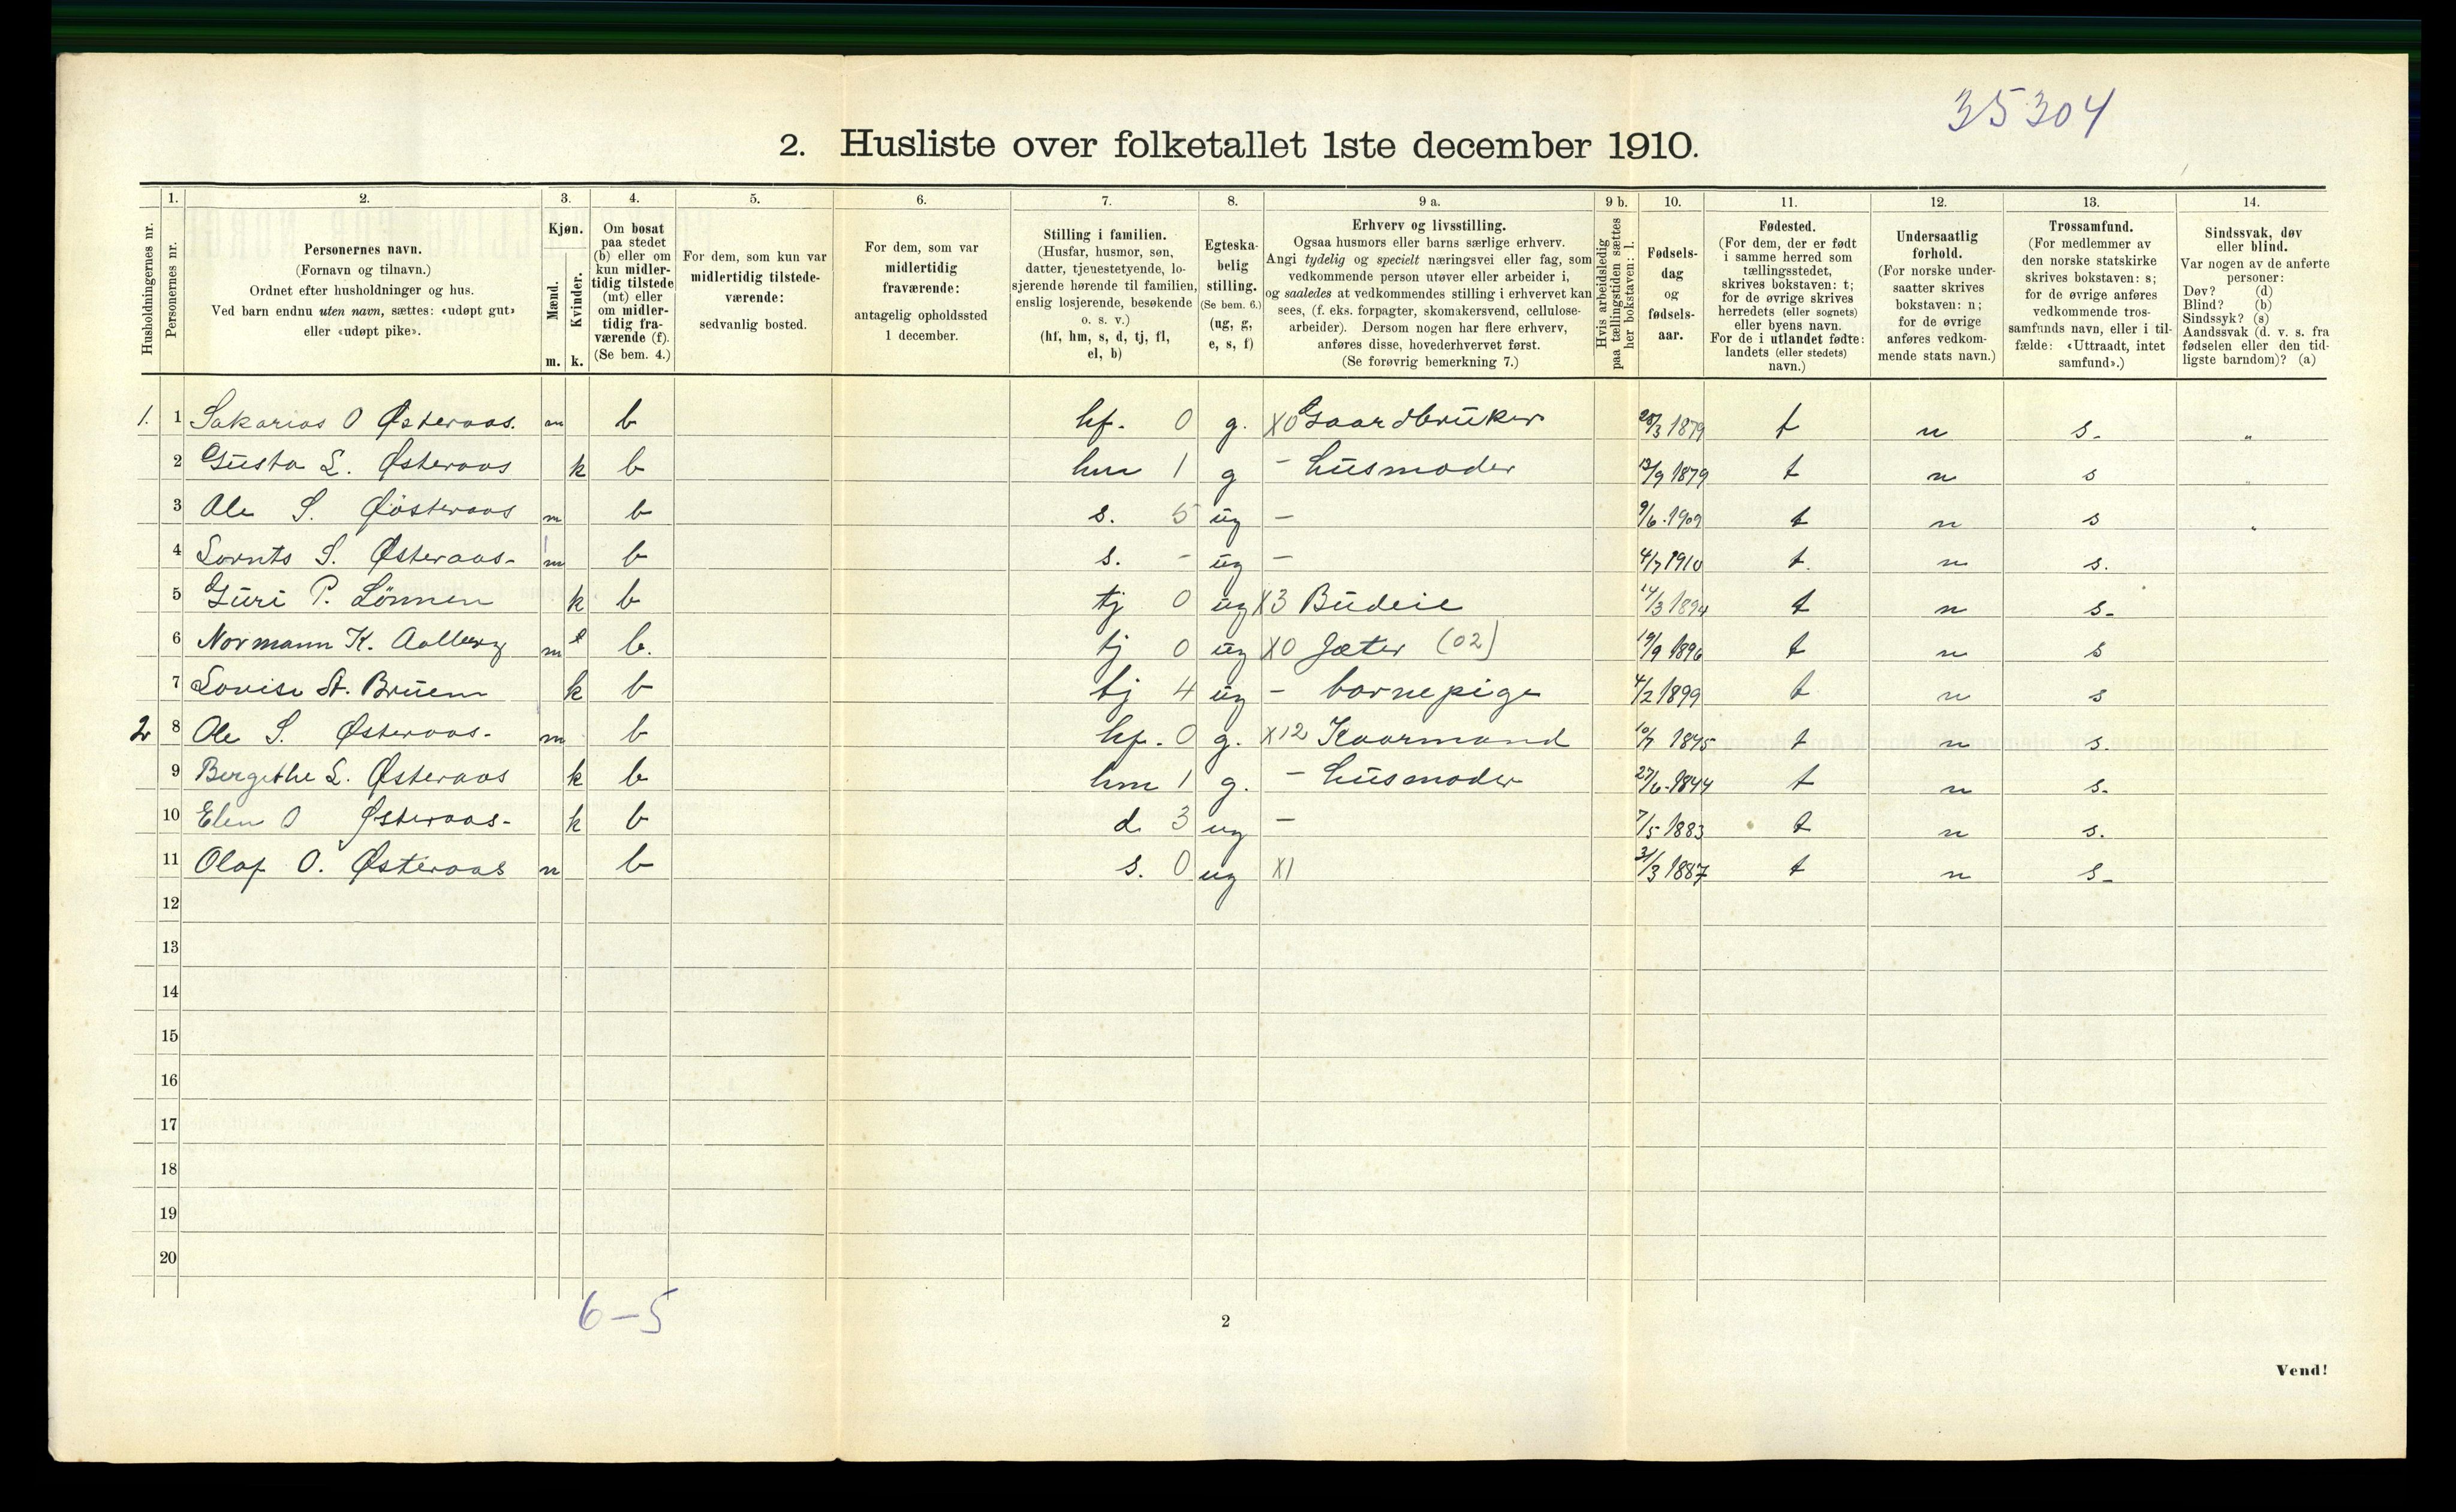 35304
2. Husliste over folketallet 1ste december 1910.
Husholdningernes nr.
1.
Personernes nr.
2.
Personernes navn.
(Fornavn og tilnavn.)
Ordnet efter husholdninger og hus.
Ved barn endnu uten navn, sættes: «udøpt gut»
eller «udøpt pike».
3.
Kjøn.
Mænd.
Kvinder.
m. k.
4.
Om bosat
paa stedet
(b) eller om
kun midler-
tidig tilstede
(mt) eller
om midler-
tidig fra-
værende (f).
(Se bem. 4.)
5.
For dem, som kun var
midlertidig tilstede-
værende:
sedvanlig bosted.
6.
For dem, som var
midlertidig
fraværende:
antagelig opholdssted
1 december.
7.
Stilling i familien.
(Husfar, husmor, søn,
datter, tjenestetyende, lo-
sjerende hørende til familien,
enslig losjerende, besøkende
o. s. v.)
(hf, hm, s, d, tj, fl,
el, b)
8.
Egteska-
belig
stilling.
(Se bem. 6.)
(ug, g,
e, s, f)
9 a.
Erhverv og livsstilling.
Ogsaa husmors eller barns særlige erhverv.
Angi tydelig og specielt næringsvei eller fag, som
vedkommende person utøver eller arbeider i,
og saaledes at vedkommendes stilling i erhvervet kan
sees, (f. eks. forpagter, skomakersvend, cellulose-
arbeider). Dersom nogen har flere erhverv,
anføres disse, hovederhvervet først.
(Se forøvrig bemerkning 7.)
9 b.
Hvis arbeidsledig
paa tællingstiden sættes
her bokstaven: l.
10.
Fødsels-
dag
og
fødsels-
aar.
11.
Fødested.
(For dem, der er født
i samme herred som
tællingsstedet,
skrives bokstaven: t;
for de øvrige skrives
herredets (eller sognets)
eller byens navn.
For de i utlandet fødte:
landets (eller stedets)
navn.)
12.
Undersaatlig
forhold.
(For norske under-
saatter skrives
bokstaven: n;
for de øvrige
anføres vedkom-
mende stats navn.)
13.
Trossamfund.
(For medlemmer av
den norske statskirke
skrives bokstaven: s;
for de øvrige anføres
vedkommende tros-
samfunds navn, eller i til-
fælde: «Uttraadt, intet
samfund».)
14.
Sindssvak, døv
eller blind.
Var nogen av de anførte
personer:
Døv? (d)
Blind? (b)
Sindssyk? (s)
Aandssvak (d. v. s. fra
fødselen eller den tid-
ligste barndom)? (a)
1. 1 Sakarias O Østeraas. m b hf. 0 g. X0 Gaardbruker 1879 t n s. "
2 Gusta L. Østeraas k b hm 1 g - husmoder 13/9 1879 t n s "
3 Ole S. Østeraas m b s. 5 ug - 9/6. 1909 t n s "
4 Lornts S. Østeraas- m b s. - ug - 4/7 1910 t. n s.
5 Guri P. Lønnen k b tj 0 ug X3 Budeie 14/3 1894 t n s-
6 Normann K. Aalberg m b. tj 0 ug X0 Jæter (02) 19/9 1896 t n s
7 Lovise St. Bruem k b tj 4 ug - barnepige 4/2 1899 t n s
2 8 Ole S. Østeraas- m b hf. 0 g. X12 Kaarmand 10/7 1845 t n s.
9 Bergithe L. Østeraas k b hm 1 g. - husmoder 27/6. 1844 t n s.
10 Elen O Østeraas- k b d. 3 ug - 7/5 1883 t n s.
11 Olaf O. Østeraas m b s. 0 ug X1 31/3 1887 t n s-
12
13
14
15
16
17
18
19
20
6-5
2
Vend!